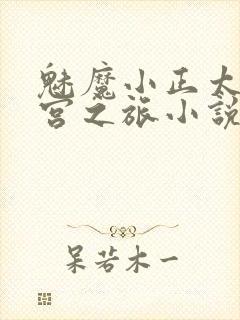 魅魔小正太
宫之旅小説
呆若木一